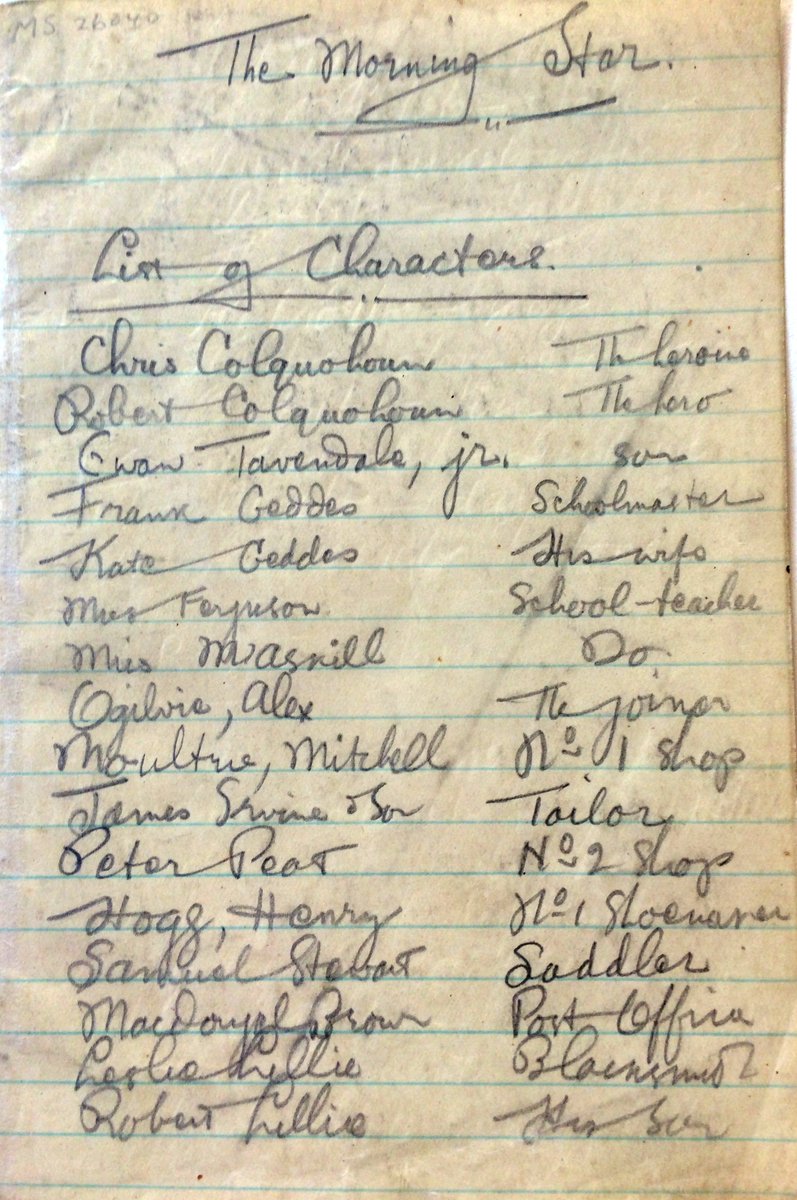 MS. 26040
The Morning Star.
List of Characters.
Chris Colquohoun The heroine
Robert Colquohoun The hero
Ewan Tavendale, jr. son
Frank Geddes Schoolmaster
Kate Geddes His wife
Miss Ferguson School-teacher
Miss M'Askill Do
Ogilvie, Alex The joiner
Moultrie, Mitchell No 1 Shop
James Irvine & Son Tailor
Peter Peat No 2 Shop
Hogg, Henry No 1 Shoemaker
Samuel Stewart Saddler
Macdougal Brown Post Office
Leslie Lellie Blacksmith
Robert Lellie His Son